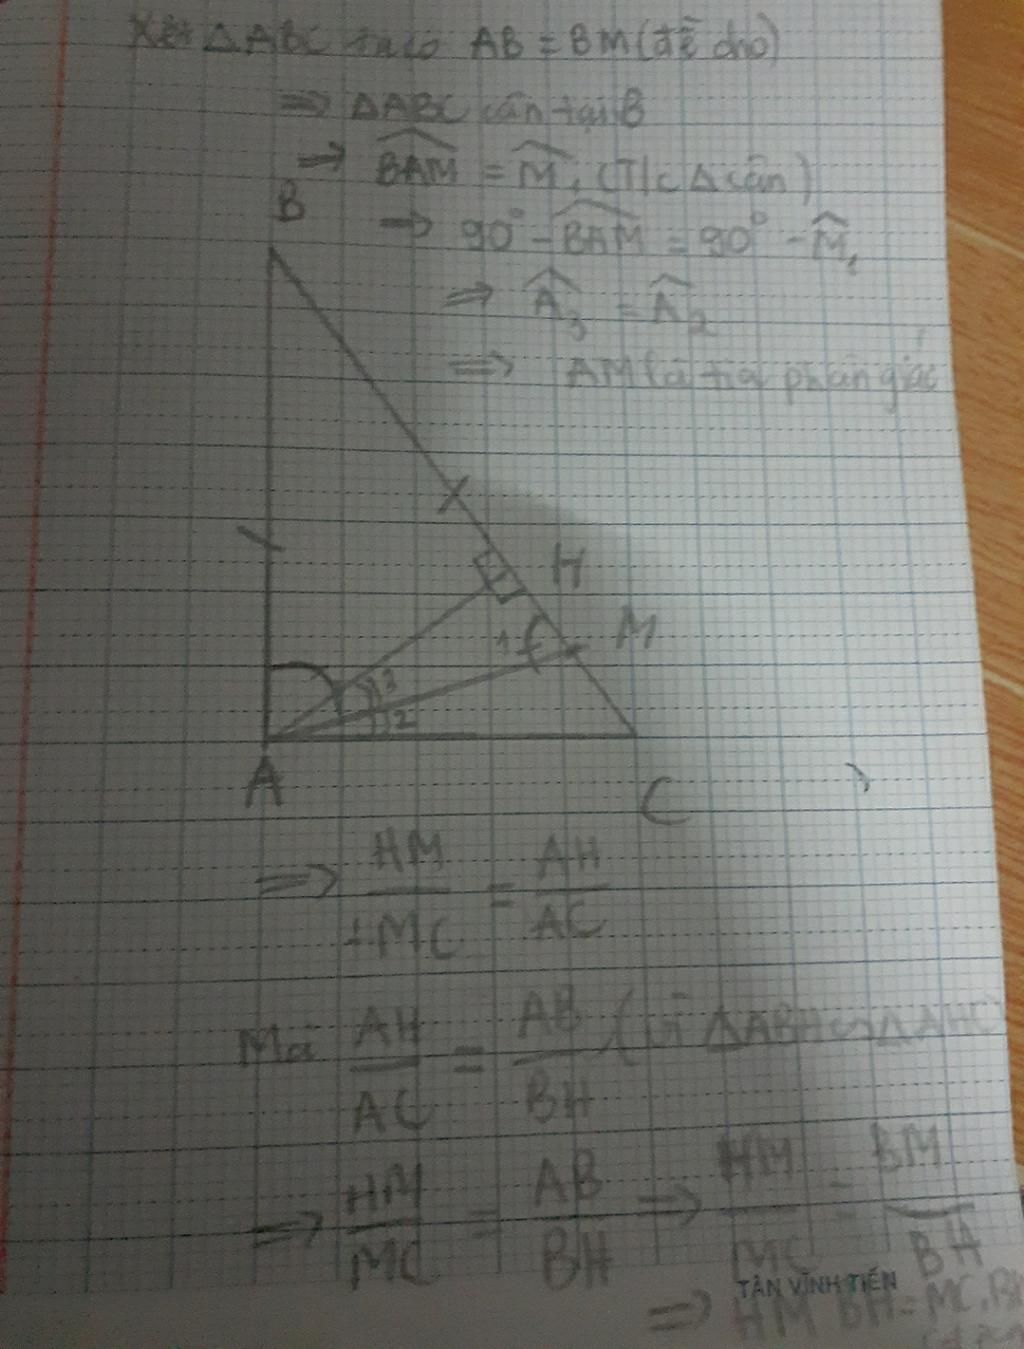 Xét △ABC ta có AB = BM (đề cho)
=> △ABC cân tại B
=> BAM = M₁ (T/c △ cân)
B
=> 90° - BAM = 90° - M₁
=> A₃ = A₂
=> AM là tia phân giác
H
1
M
3
2
A
C
=> HM/MC = AH/AC
Mà AH/AC = AB/BH (vì △ABH ∽ △AHC
=> HM/MC = AB/BH => HM/MC = BM/BH
TÂN VĨNH TIẾN
=> HM BH = MC.